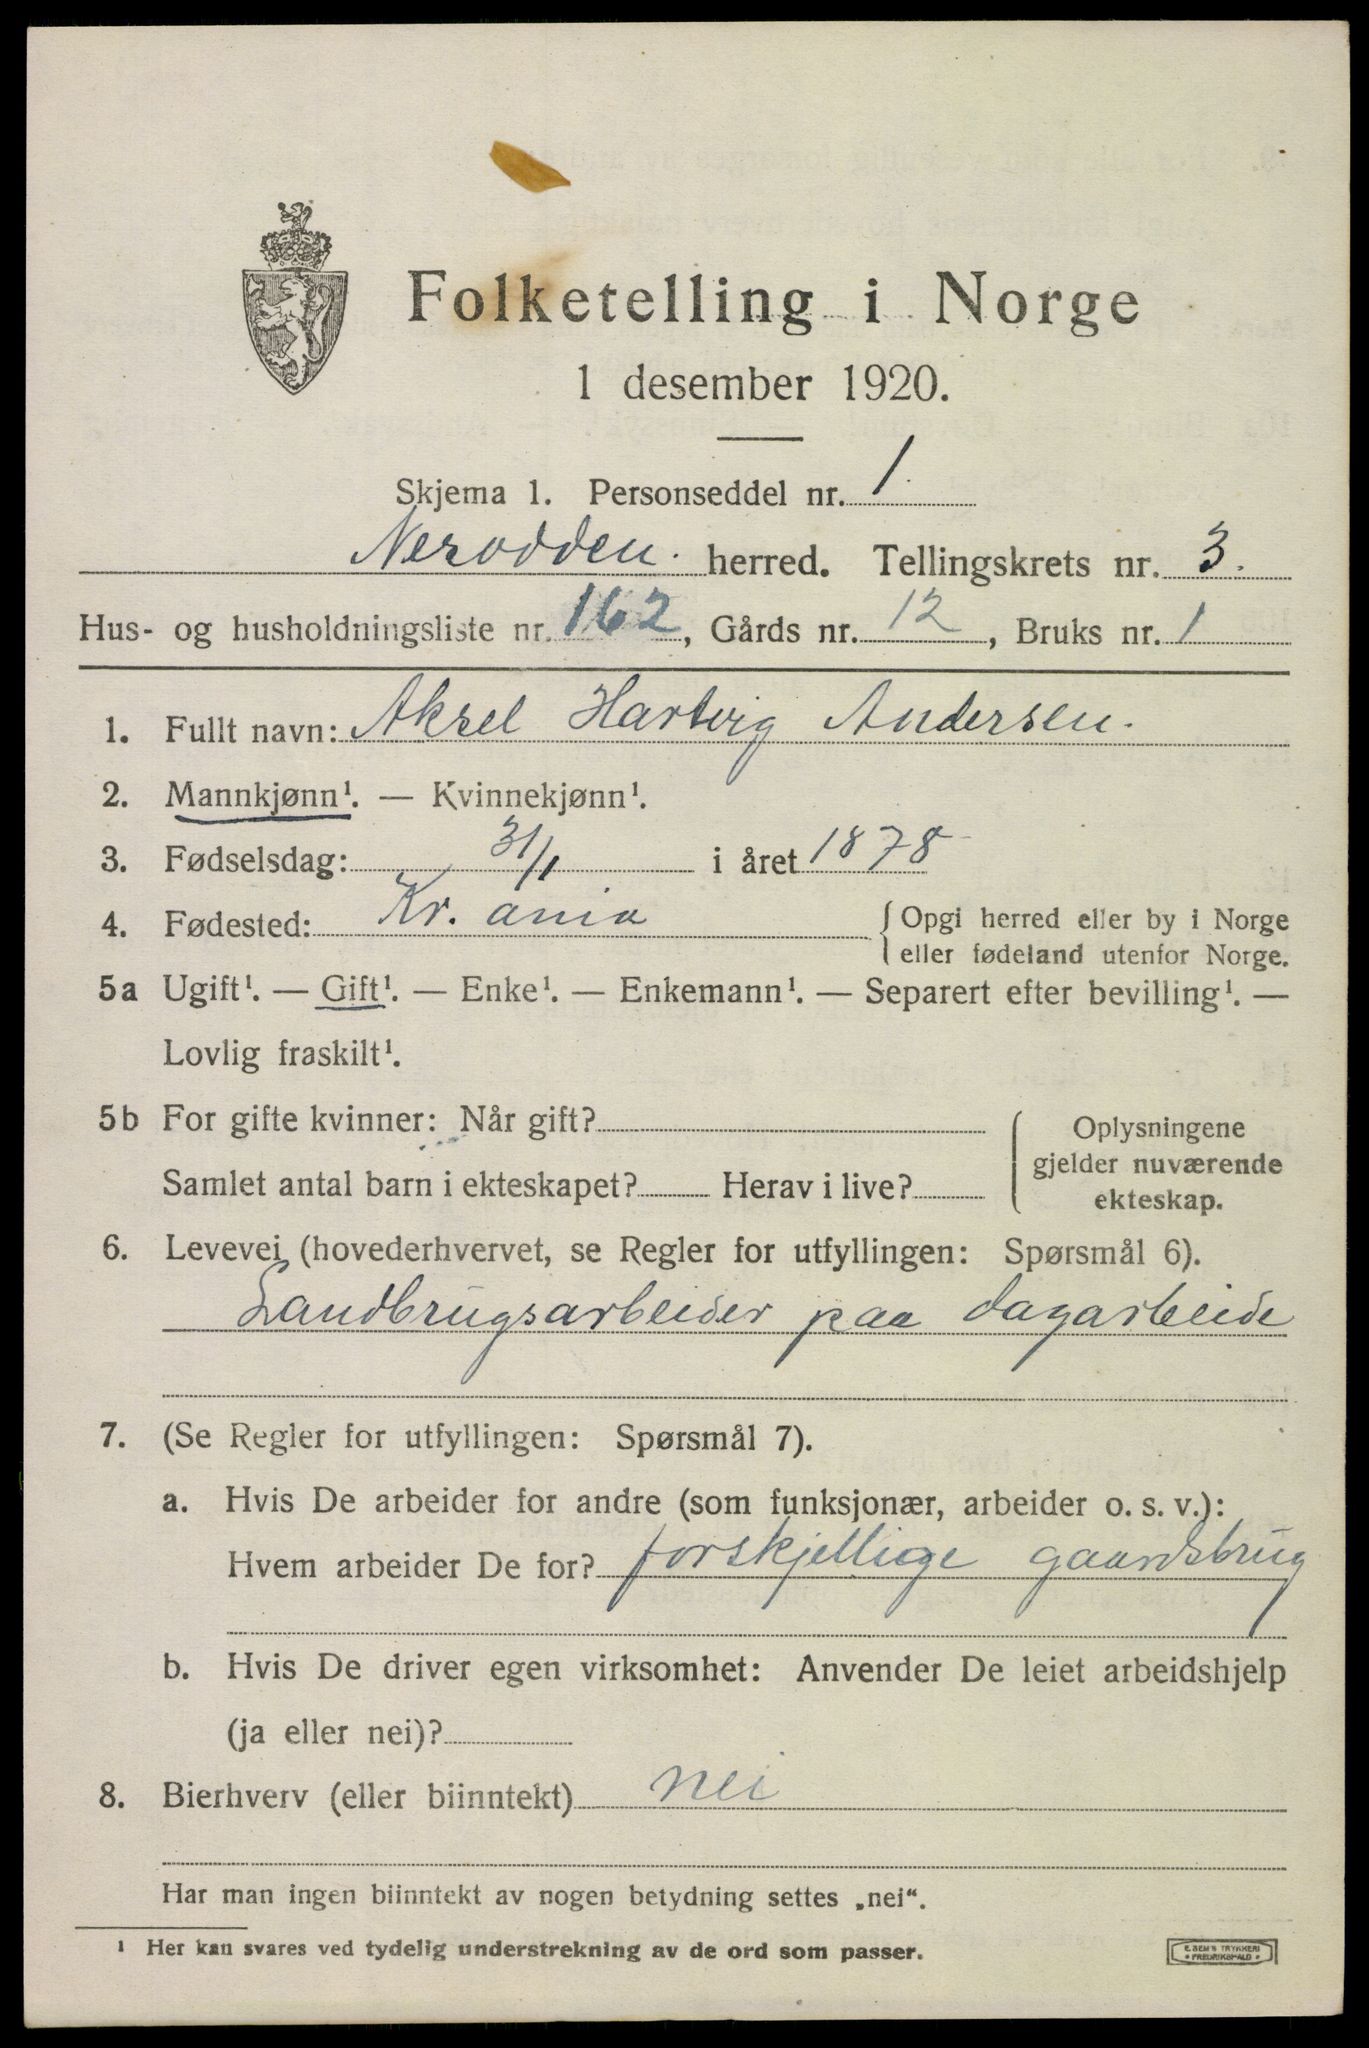 Folketelling i Norge
1 desember 1920.
Skjema 1. Personseddel nr. 1.
Nesodden. herred. Tellingskrets nr. 3.
Hus- og husholdningsliste nr. 162, Gårds nr. 12, Bruks nr. 1
1. Fullt navn: Aksel Hartvig Andersen.
2. Mannkjønn¹. — Kvinnekjønn¹.
3. Fødselsdag: 31/1 i året 1878
4. Fødested: Kr. ania {Opgi herred eller by i Norge
eller fødeland utenfor Norge.
5a Ugift¹. — Gift¹. — Enke¹. — Enkemann¹. — Separert efter bevilling¹. —
Lovlig fraskilt¹.
5b For gifte kvinner: Når gift?
Samlet antal barn i ekteskapet? Herav i live?
Oplysningene
gjelder nuværende
ekteskap.
6. Levevei (hovederhvervet, se Regler for utfyllingen: Spørsmål 6).
Landbrugsarbeider paa dagarbeide
7. (Se Regler for utfyllingen: Spørsmål 7).
a. Hvis De arbeider for andre (som funksjonær, arbeider o. s. v.):
Hvem arbeider De for? forskjellige gaardsbrug
b. Hvis De driver egen virksomhet: Anvender De leiet arbeidshjelp
(ja eller nei)?
8. Bierhverv (eller biinntekt) nei
Har man ingen biinntekt av nogen betydning settes „nei“.
¹ Her kan svares ved tydelig understrekning av de ord som passer.
E. SEM'S TRYKKERI
FREDRIKSHALD